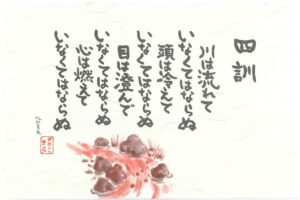 四訓
川は流れて
いなくてはならぬ
頭は冷えて
いなくてはならぬ
目は澄んで
いなくてはならぬ
心は燃えて
いなくてはならぬ